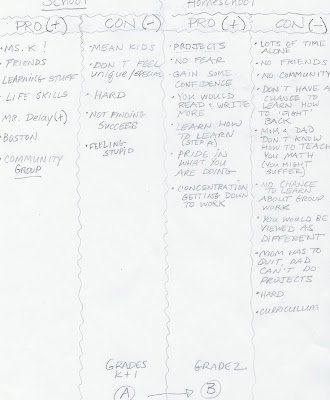 School
Homeschool
PRO (+)
• MS. K !
• FRIENDS
• LEARNING STUFF
• LIFE SKILLS
• Mr. Delay (+)
• BOSTON
• COMMUNITY
GROUP
CON (-)
• MEAN KIDS
• DON'T FEEL
unique/special
• HARD
• NOT FINDING
SUCCESS
• FEELING
STUPID
GRADES
K+1
(A)
PRO (+)
• PROJECTS
• NO FEAR
• GAIN SOME
CONFIDENCE
• YOU WOULD
READ & WRITE
MORE
• LEARN HOW
TO LEARN
(STEP A)
• PRIDE IN
WHAT YOU
ARE DOING
• CONCENTRATION
GETTING DOWN
TO WORK
GRADE 2
(B)
CON (-)
• LOTS OF TIME
ALONE
• NO FRIENDS
• NO COMMUNITY
• DON'T HAVE A
CHANCE TO
LEARN HOW
TO FIGHT
BACK
• MOM & DAD
DON'T KNOW
HOW TO TEACH
YOU MATH
(YOU MIGHT
SUFFER)
• NO CHANCE
TO LEARN
ABOUT GROUP
WORK
• YOU WOULD BE
VIEWED AS
DIFFERENT
• MOM HAS TO
QUIT, DAD
CAN'T DO
PROJECTS
• HARD
• CURICULUM